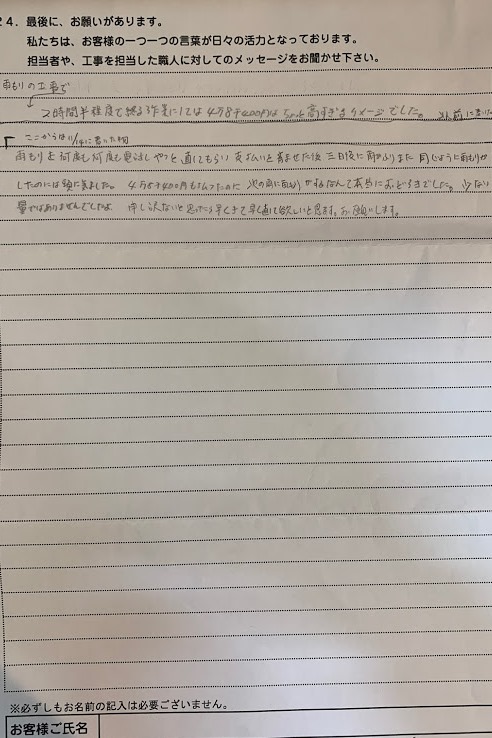 24. 最後に、お願いがあります。
私たちは、お客様の一つ一つの言葉が日々の活力となっております。
担当者や、工事を担当した職人に対してのメッセージをお聞かせ下さい。
雨もりの工事で
2時間半程度で終る作業にしては4万8千400円はちょっと高すぎるイメージでした。 以前に書いた
ここからは 11/14に書いた
雨もりを何度も何度も電話しやっと直してもらい支払いを済ませた後三日後に雨がふりまた同じように雨もりが
したのには 4万8千400円も払ったのに次の雨に雨もりがするなんて本当におどろきでした。少ない
量ではありませんでしたよ 申し訳ないと思ったら早くきて早く直して欲しいと思います。お願いします。
※必ずしもお名前の記入は必要ございません。
お客様ご氏名